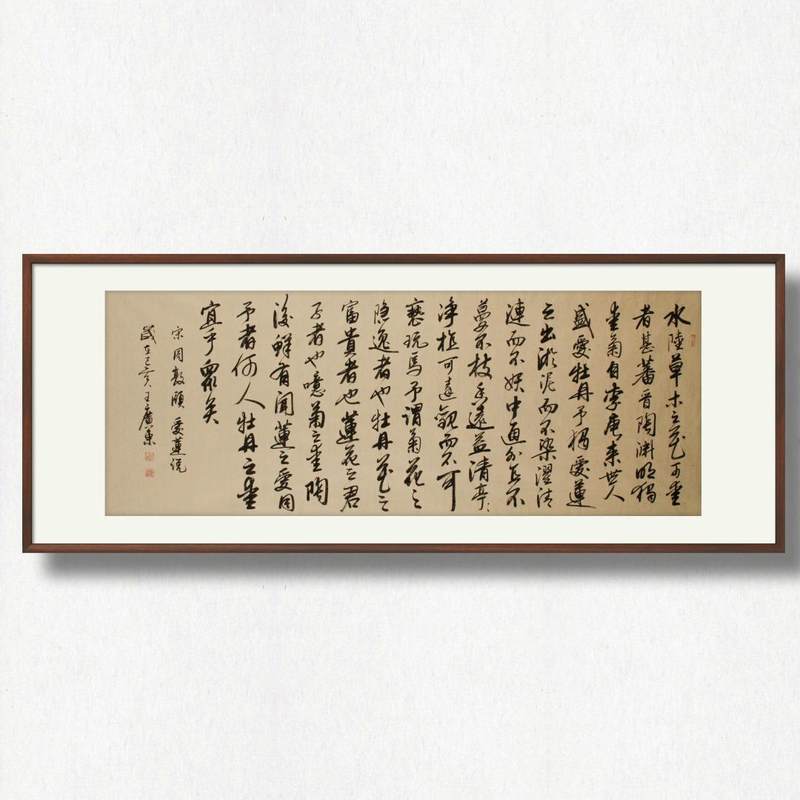 水陸草木之花可愛
者甚蕃晉陶淵明獨
愛菊自李唐来世人
盛愛牡丹予獨愛蓮
之出淤泥而不染濯清
漣而不妖中通外直不
蔓不枝香遠益清亭々
淨植可遠觀而不可
褻玩焉予謂菊花之
隐逸者也牡丹花之
富貴者也蓮花之君
子者也噫菊之愛陶
後鮮有聞蓮之愛同
予者何人牡丹之愛
宜乎眾矣
宋周敦頤愛蓮説
歲在己亥王廣東